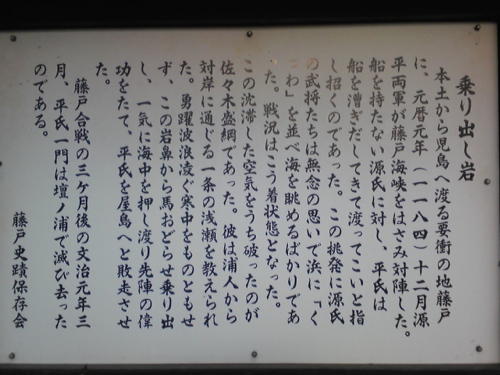 乗り出し岩
本土から児島へ渡る要衝の地藤戸
に、元暦元年（一一八四）十二月源
平両軍が藤戸海峡をはさみ対陣した。
船を持たない源氏に対し、平氏は
船を漕ぎだしてきて渡ってこいと指
し招くのであった。この挑発に源氏
の武将たちは無念の思いで浜に「く
つわ」を並べ海を眺めるばかりであ
った。戦況はこう着状態となった。
この沈滞した空気をうち破ったのが
佐々木盛綱であった。彼は浦人から
対岸に通じる一条の浅瀬を教えられ
た。勇躍波浪凌ぐ寒中をものともせ
ず、この岩鼻から馬おどらせ乗り出
し、一気に海中を押し渡り先陣の偉
功をたて、平氏を屋島へと敗走させ
た。
藤戸合戦の三ヶ月後の文治元年三
月、平氏一門は壇ノ浦で滅び去った
のである。
藤戸史蹟保存会